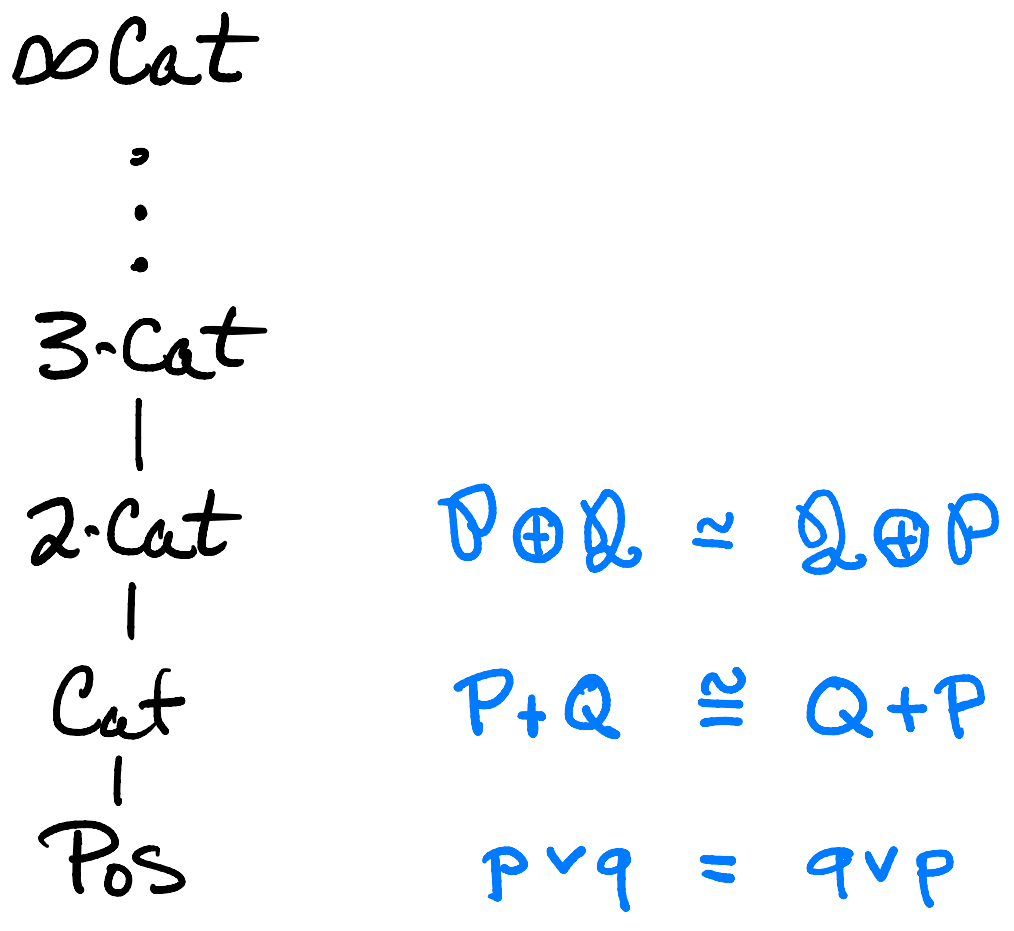 ∞Cat
⋮
3-Cat
|
2-Cat P⊕Q ≃ Q⊕P
|
Cat P+Q ≅ Q+P
|
Pos p∨q = q∨p